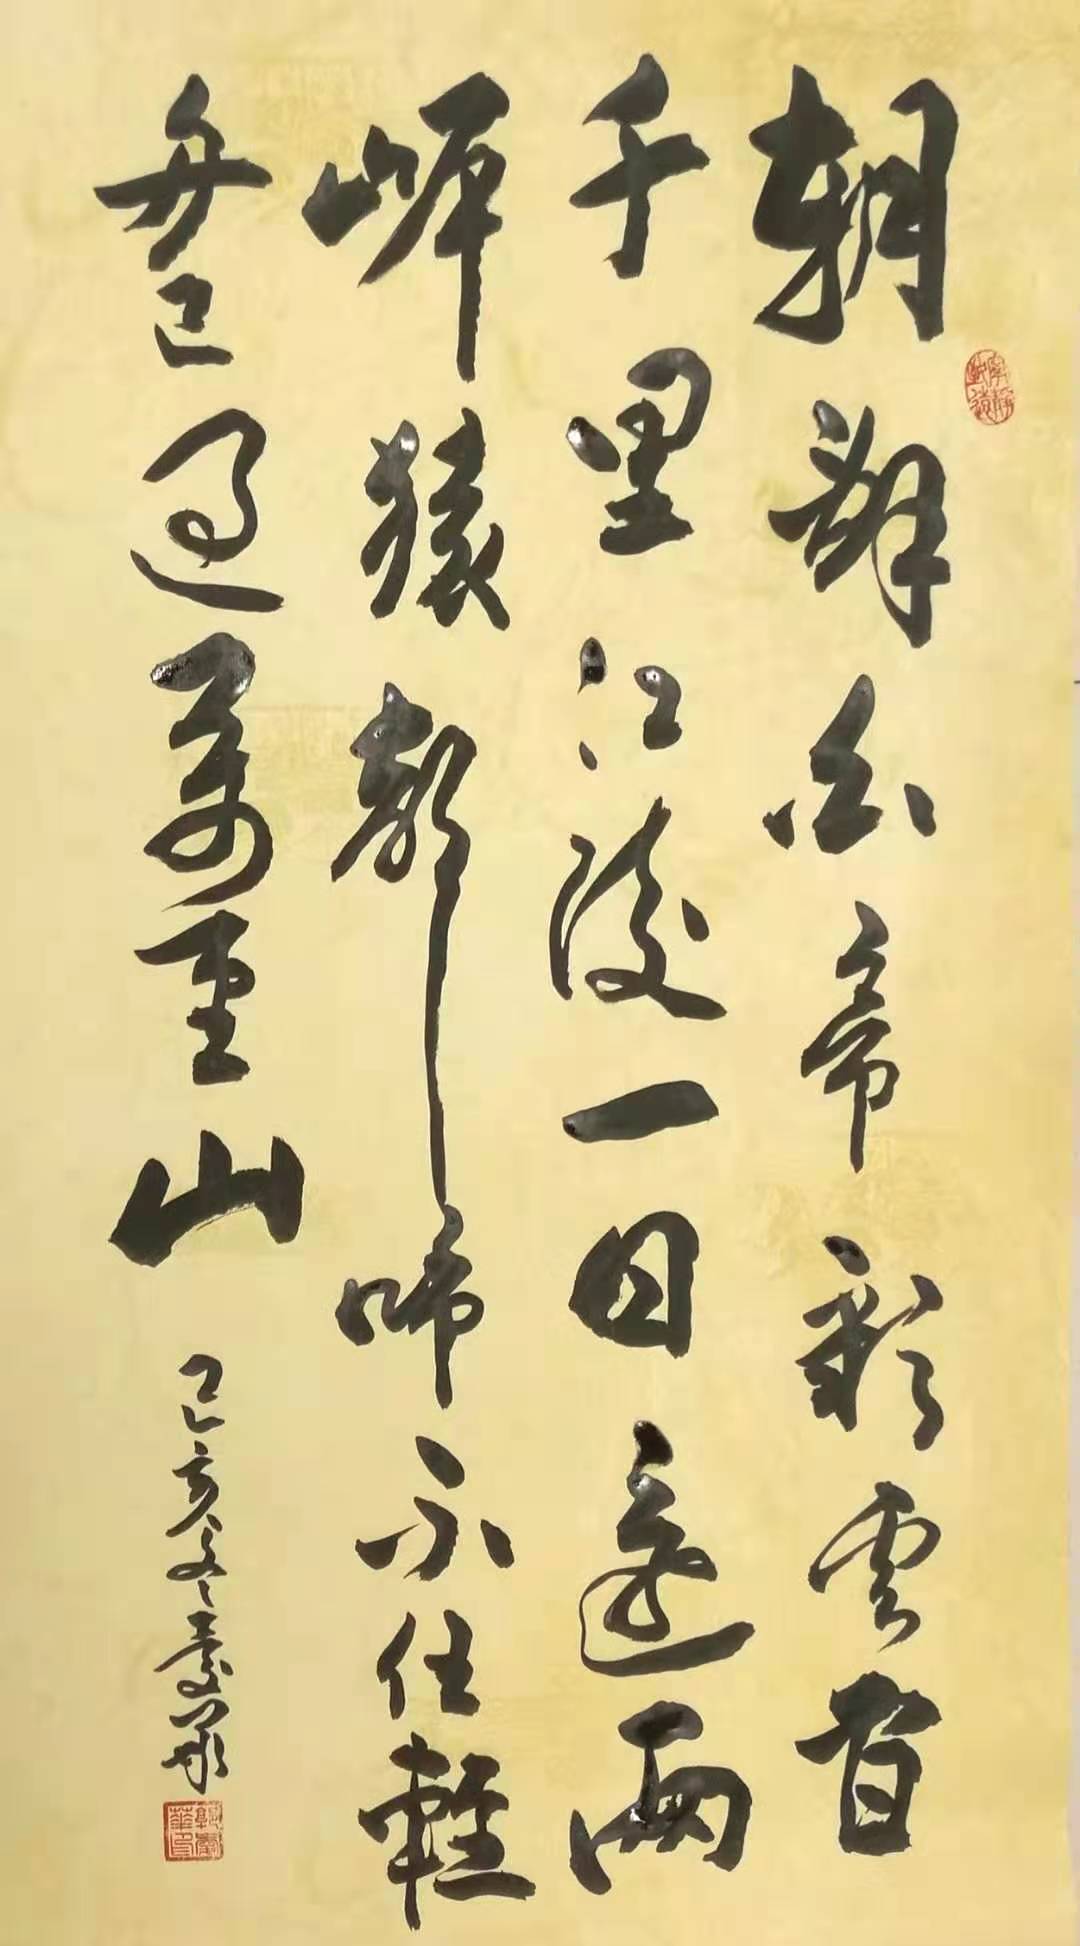 朝辭白帝彩雲間
千里江陵一日還兩
岸猿聲啼不住輕
舟已過萬重山
己亥冬慶華
寧靜致遠